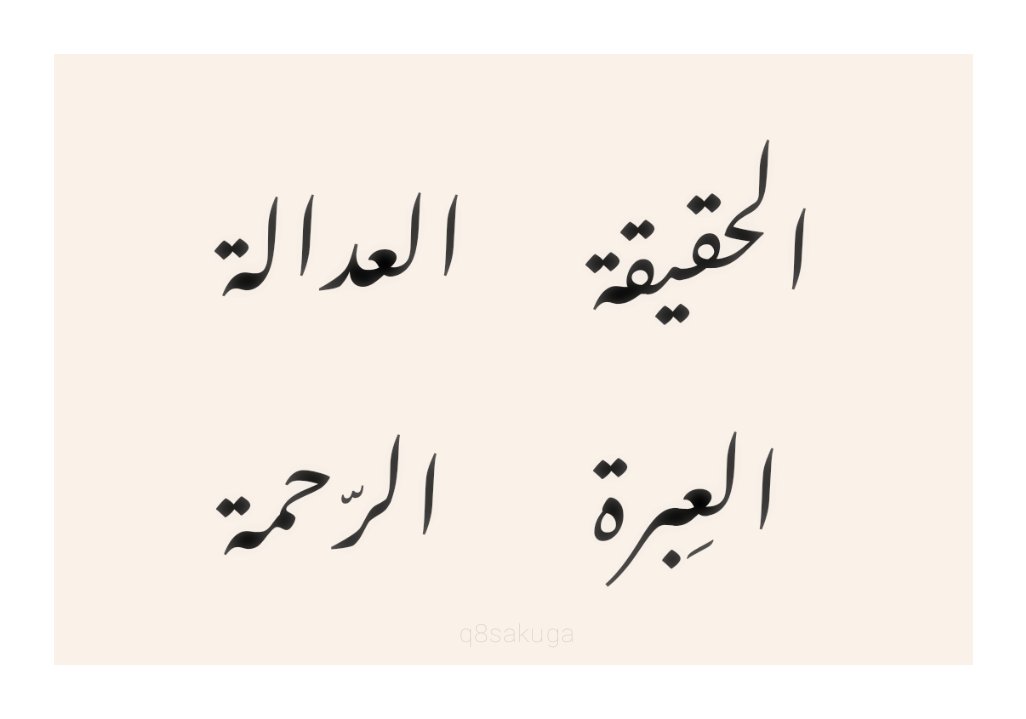 الحقيقة العدالة
العِبرة الرّحمة
q8sakuga